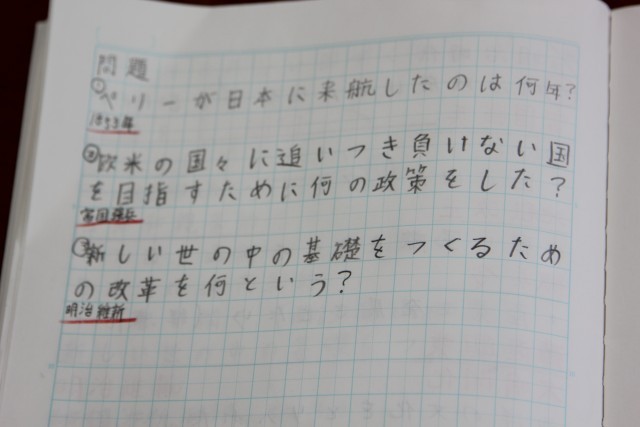 問題
①ペリーが日本に来航したのは何年?
1853年
②欧米の国々に追いつき負けない国
を目指すために何の政策をした?
富国強兵
③新しい世の中の基礎をつくるため
の改革を何という?
明治維新